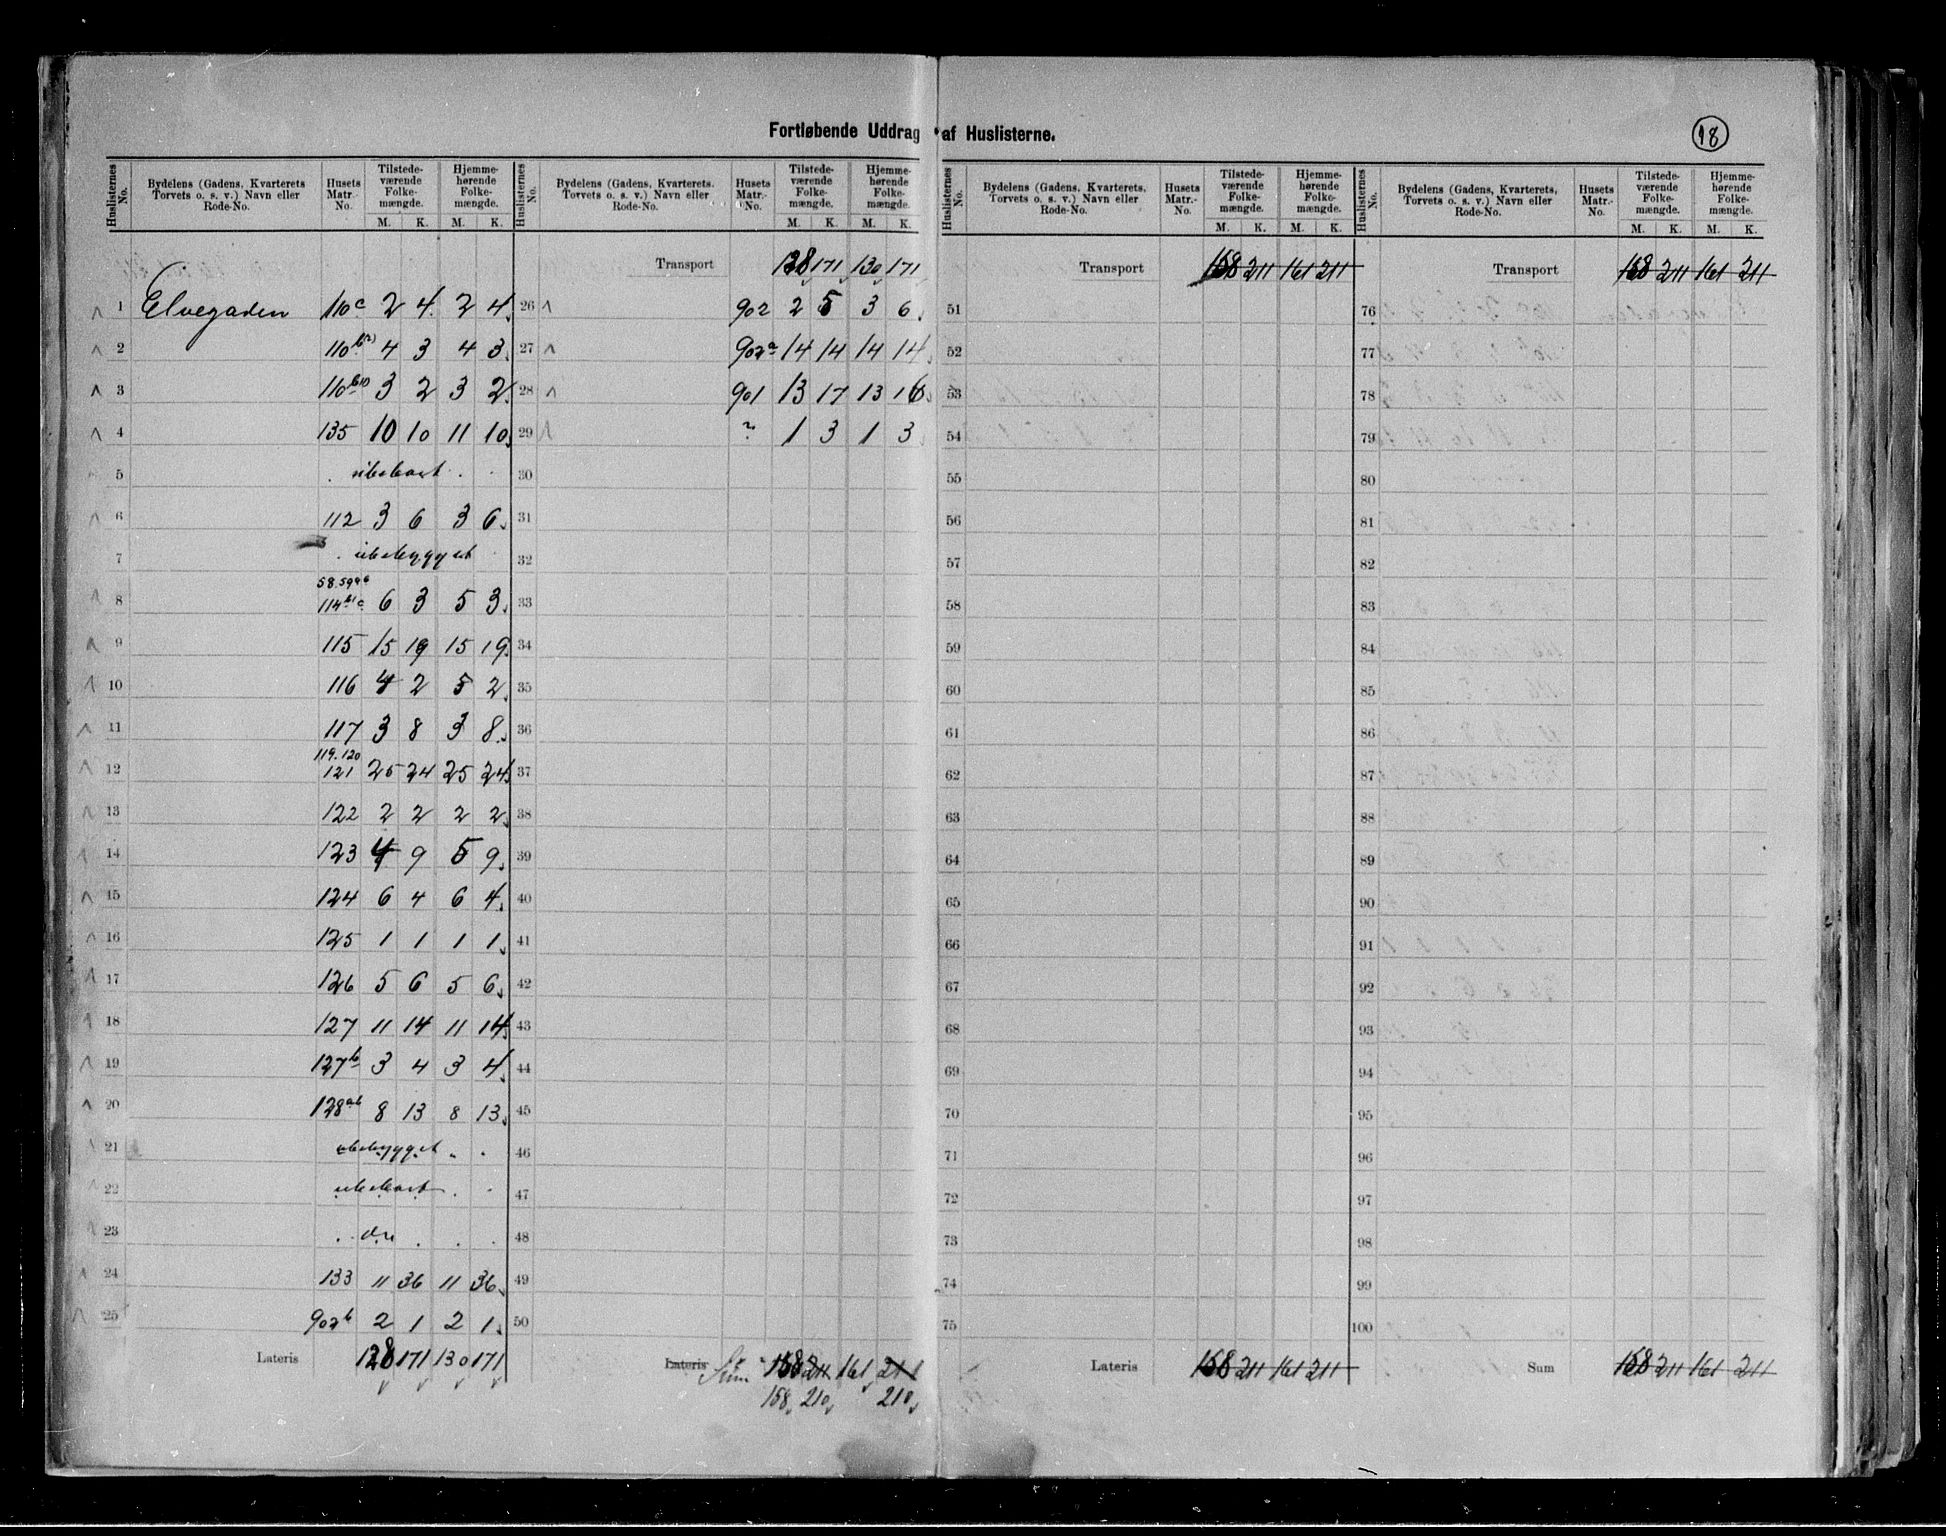 Fortløbende Uddrag af Huslisterne.
18
Huslisternes No. | Bydelens (Gadens, Kvarterets Torvets o. s. v.) Navn eller Rode-No. | Husets Matr.-No. | Tilstedeværende Folkemængde. M. K. | Hjemmehørende Folkemængde. M. K.
1 Elvegaden 110c 2 4 2 4
2 110b 4 3 4 3
3 110b 3 2 3 2
4 135 10 10 11 10
5 ubeboet
6 112 3 6 3 6
7 ubebygget
8 58.59 114 c 6 3 5 3
9 115 15 19 15 19
10 116 4 2 5 2
11 117 3 8 3 8
12 119.120 121 25 24 25 24
13 122 2 2 2 2
14 123 4 9 5 9
15 124 6 4 6 4
16 125 1 1 1 1
17 126 5 6 5 6
18 127 11 14 11 14
19 127b 3 4 3 4
20 128ab 8 13 8 13
21 ubebygget
22 ubeboet
23
24 133 11 36 11 36
25 902b 2 1 2 1
Lateris 128 171 130 171
Huslisternes No. | Bydelens (Gadens, Kvarterets. Torvets o. s. v.) Navn eller Rode-No. | Husets Matr.-No. | Tilstedeværende Folkemængde. M. K. | Hjemmehørende Folkemængde. M. K.
Transport 128 171 130 171
26 902 2 5 3 6
27 902a 14 14 14 14
28 901 13 17 13 16
29 ? 1 3 1 3
30
31
32
33
34
35
36
37
38
39
40
41
42
43
44
45
46
47
48
49
50
Lateris Sum 158 211 161 211
158 210 210
Huslisternes No. | Bydelens (Gadens, Kvarterets, Torvets o. s. v.) Navn eller Rode-No. | Husets Matr.-No. | Tilstedeværende Folkemængde. M. K. | Hjemmehørende Folkemængde. M. K.
Transport 158 211 161 211
51
52
53
54
55
56
57
58
59
60
61
62
63
64
65
66
67
68
69
70
71
72
73
74
75
Lateris 158 211 161 211
Huslisternes No. | Bydelens (Gadens, Kvarterets, Torvets o. s. v.) Navn eller Rode-No. | Husets Matr.-No. | Tilstedeværende Folkemængde. M. K. | Hjemmehørende Folkemængde. M. K.
Transport 158 211 161 211
76
77
78
79
80
81
82
83
84
85
86
87
88
89
90
91
92
93
94
95
96
97
98
99
100
Sum 158 211 161 211